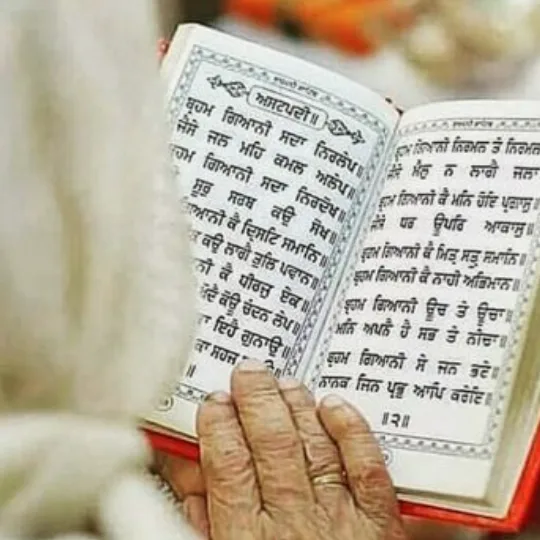 ਸੁਖਮਨੀ ਸਾਹਿਬ
ਅਸਟਪਦੀ॥
ਬ੍ਰਹਮ ਗਿਆਨੀ ਸਦਾ ਨਿਰਲੇਪ॥
ਜੈਸੇ ਜਲ ਮਹਿ ਕਮਲ ਅਲੇਪ॥
ਹਮ ਗਿਆਨੀ ਸਦਾ ਨਿਰਦੋਖ॥
ਸੂਰੁ ਸਰਬ ਕਉ ਸੋਖ॥
ਗਿਆਨੀ ਕੈ ਦ੍ਰਿਸਟਿ ਸਮਾਨਿ॥
ਕਉ ਲਾਗੈ ਤੁਲਿ ਪਵਾਨ॥
ਨੀ ਕੈ ਧੀਰਜੁ ਏਕ॥
ਕੋਊ ਚੰਦਨ ਲੇਪ॥
ਕਾ ਇਹੈ ਗੁਨਾਉ॥
ਕਾ ਸਹਜ
॥
ਸੁਖਮਨੀ ਸਾਹਿਬ
ਬ੍ਰਹਮ ਗਿਆਨੀ ਨਿਰਮਲ ਤੇ ਨਿਰਮਲ
ਜੈਸੇ ਮੈਲੁ ਨ ਲਾਗੈ ਜਲਾ
ਬ੍ਰਹਮ ਗਿਆਨੀ ਕੈ ਮਨਿ ਹੋਇ ਪ੍ਰਗਾਸੁ॥
ਜੈਸੇ ਧਰ ਊਪਰਿ ਆਕਾਸੁ॥
ਬ੍ਰਹਮ ਗਿਆਨੀ ਕੈ ਮਿਤ੍ਰ ਸਤ੍ਰੁ ਸਮਾਨਿ॥
ਬ੍ਰਹਮ ਗਿਆਨੀ ਕੈ ਨਾਹੀ ਅਭਿਮਾਨ॥
ਬ੍ਰਹਮ ਗਿਆਨੀ ਊਚ ਤੇ ਊਚਾ॥
ਮਨਿ ਅਪਨੈ ਹੈ ਸਭ ਤੇ ਨੀਚਾ॥
ਬ੍ਰਹਮ ਗਿਆਨੀ ਸੇ ਜਨ ਭਏ॥
ਨਾਨਕ ਜਿਨ ਪ੍ਰਭੁ ਆਪਿ ਕਰੇਇ॥
॥੨॥